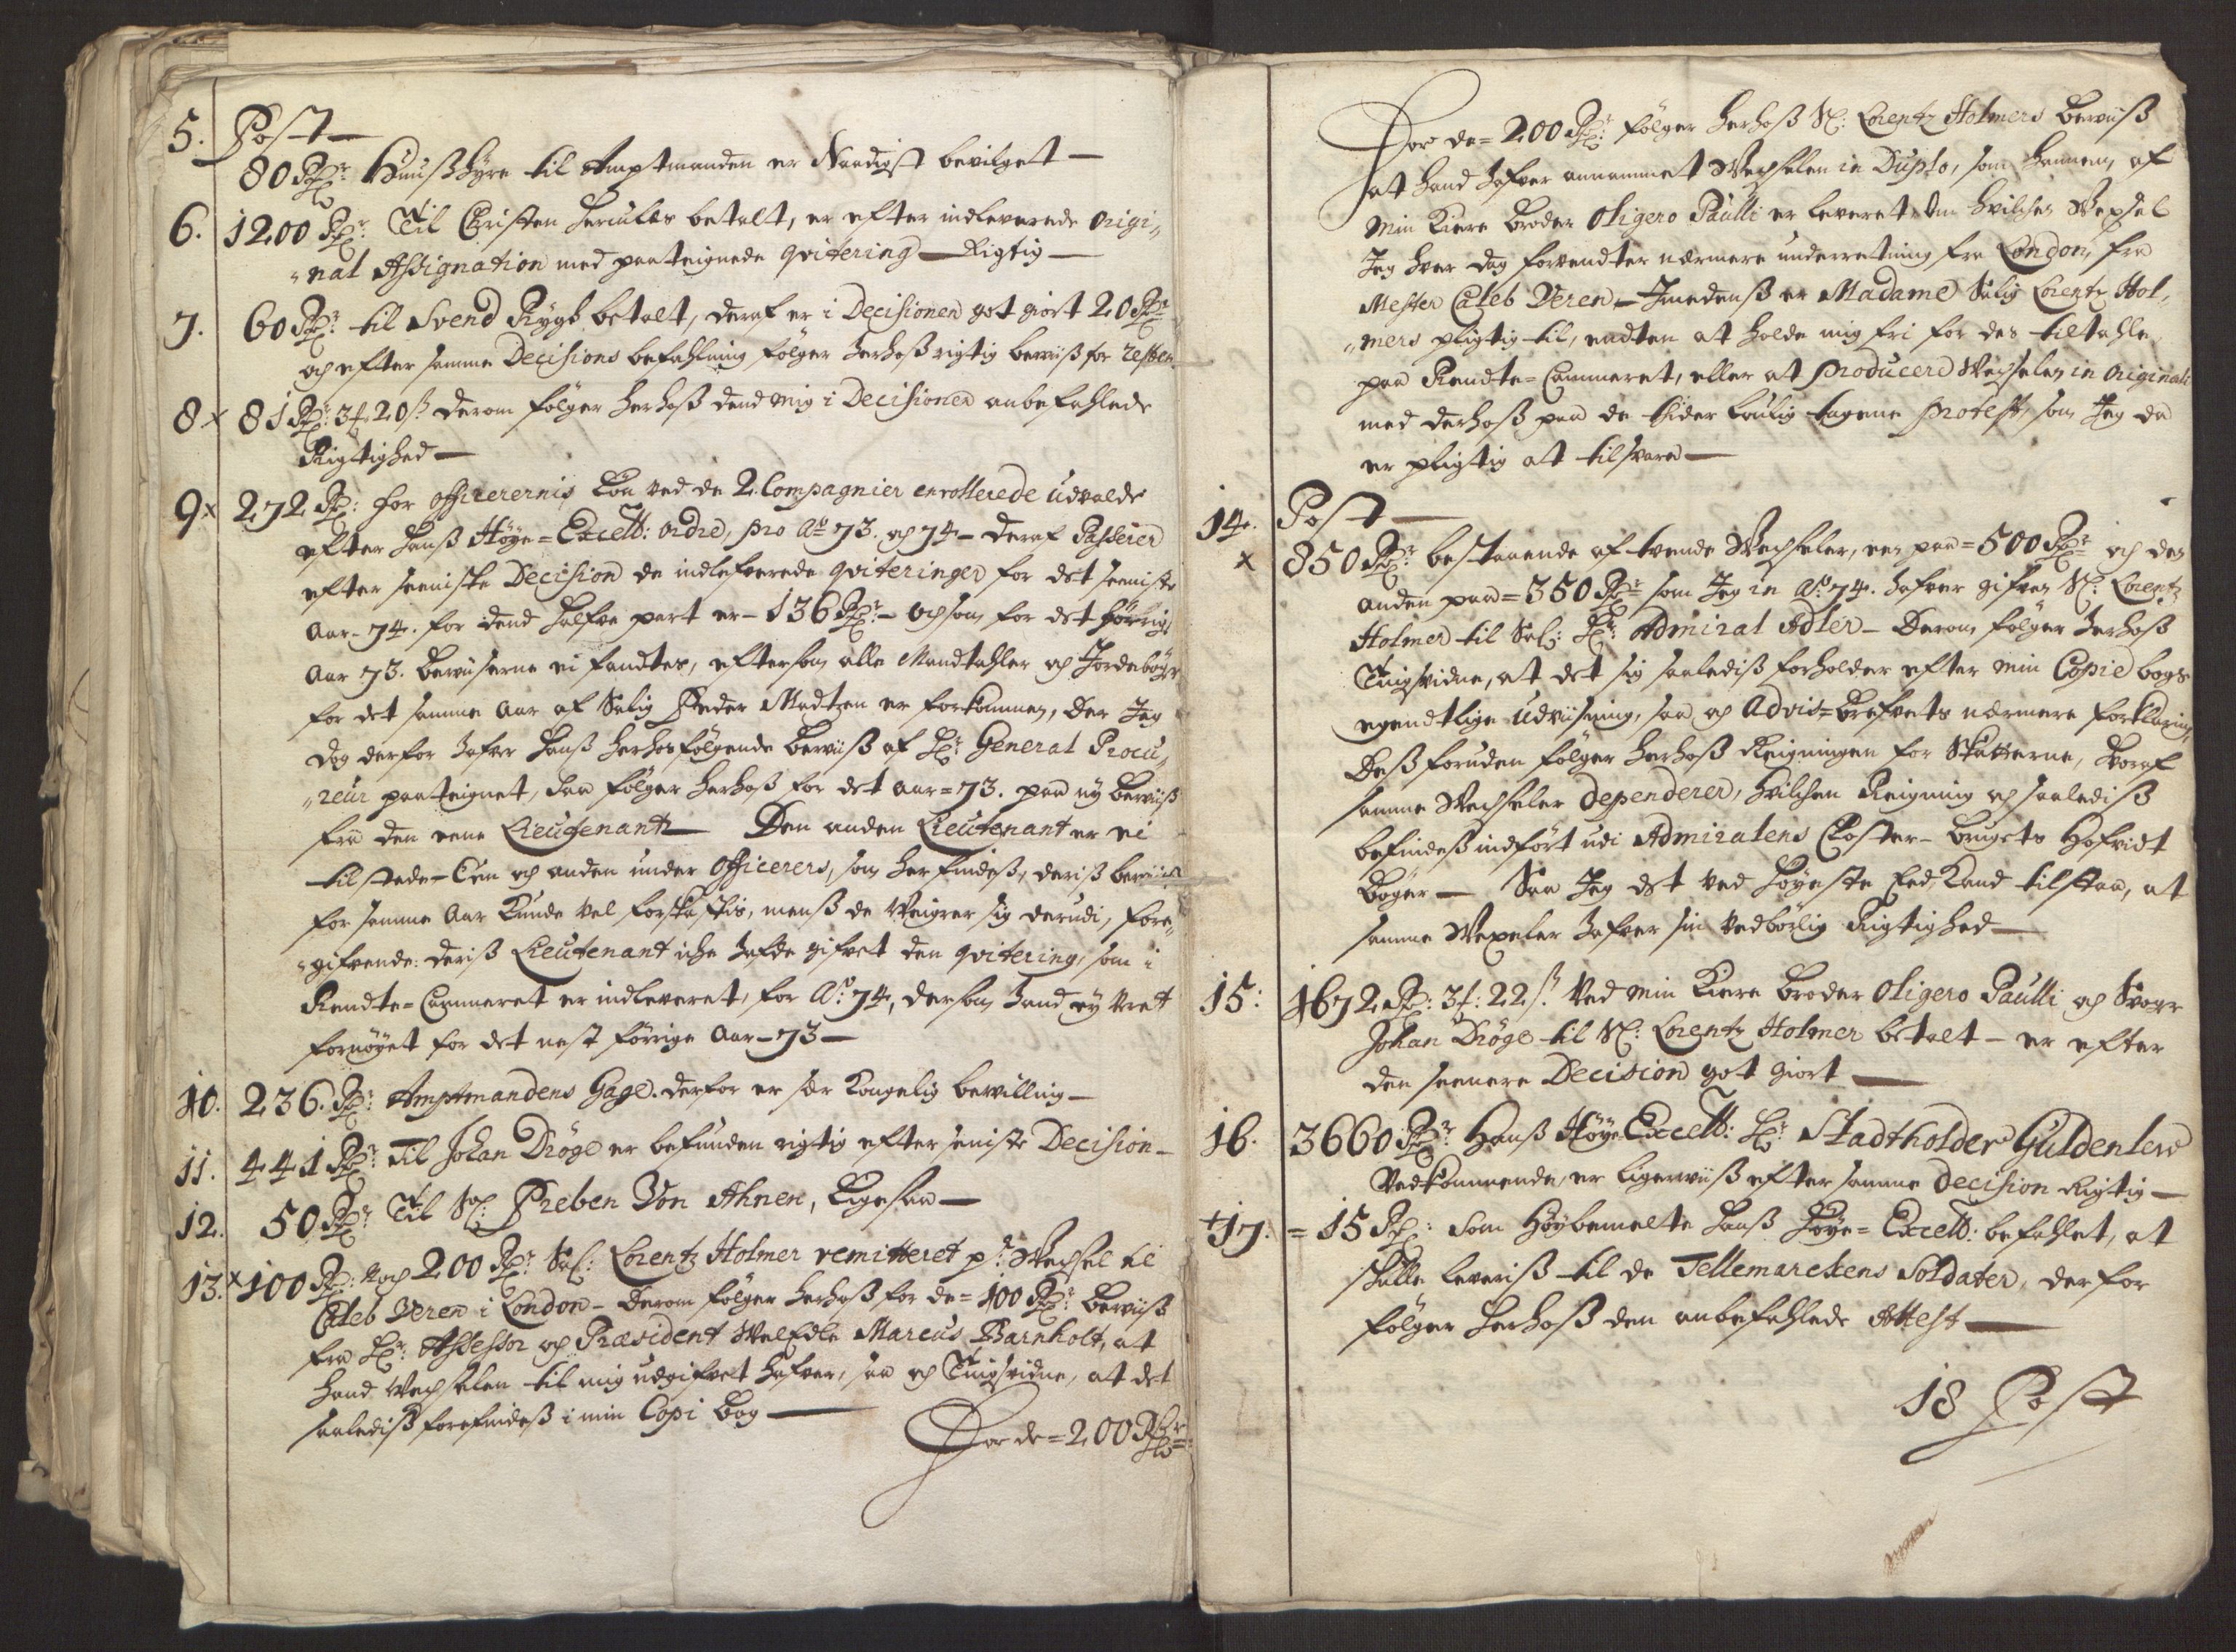 5. Post
80 Rdr Huußhyre til Amptmanden er Naadigst bevilget
6. 1200 Rdr Til Christen Hercules betalt, er efter indleverede Origi„
„nal Assignation med paateignede Qvitering Rigtig
7. 60 Rdr til Svend Rygh betalt, deraf er i Decisionen got giort 20 Rdr
och efter samme Decisions befahling følger herhoß rigtig beviiß for resten
8 x 81 Rdr 3 ƒ 20 ß derom følger herhoß dend mig i Decisionen anbefahlede
Rigtighed
9 x 272 Rd: for Officerernis Lön ved de 2. Compagnier enrollerede Udvalde
efter Hanß Höye=Excell: Ordre, pro Ao 73. och 74 - deraf Passerer
efter seeniste Decision de indlefverede Qviteringer for det seeniste
Aar - 74. for dend halfve part er - 136 Rdr - och som for det förrige
Aar 73. beviiserne ei fandtes, eftersom alle Mandtahler och Jordebøger
for det samme Aar af Salig Peder Madtzen er forkommen, der Jeg
dog derfor hafver hanß herhosfølgende beviiß af Hr: General Procu„
„reur paateignet, saa følger herhoß for det Aar=73. paa ny beviiß
fra den eene Lieutenant Den anden Lieutenant er ei
tilstede - Een och anden under Officerers, som her findeß, deriß beviiß
for samme Aar kunde vel forskaffis, menß de Veigrer sig derudi, fore„
„gifvende: deriß Lieutenant iche hafde gifvet den Qvitering, som i
Rendte=Cammeret er indleveret, for Ao 74, dersom hand ey vret
fornöyet for det nest förrige Aar - 73
10. 236. Rd: Amptmandens Gage. derfor er sær Kongelig bevilling
11. 441 Rdr Til Johan Dröge er befunden rigtig efter seniste Decision
12. 50 Rdr Til Sl: Preben Von Ahnen, Ligesaa
13. x 100 Rd: Noch 200 Rdr Sal: Lorentz Holmer remitteret pr Wechsel til
Caleb Veren i London - Derom følger herhoß for de=100 Rdr beviiß
fra Hr: Assessor och Præsident Welædle Marcus Barnholt, at
hand Wechselen til mig udgifvet hafver, saa och Tingsvidne, at det
saalediß forefindeß i min Copi bog
For de=200 Rdr
For de=200 Rdr følger herhoß Sl: Lorentz Holmers beviiß
at hand hafver annammet Wechselen in Duplo, som hannem af
min Kiere broder Oligero Paulli er leveret. Om hvilchen Wexsel
Jeg hver dag forvendter nærmere underretning fra London, fra
Mester Caleb Veren - Jmedenß er Madame Salig Lorentz Hol„
„mers pligtig til, endten at holde mig fri for des tiltahle
paa Rendte=Cammeret, eller at Producere Wechselen in Originali
med derhoß paa de tider lovlig tagene Protest, som Jeg da
er pligtig at tilsvare
14. Post
x 850 Rdr bestaaende af tvende Wechseler, een paa=500 Rdr och den
anden paa=350 Rdr som Jeg in Ao 74. hafver gifven Sl: Lorentz
Holmer til Sal: Hr: Admiral Adler - Derom følger herhoß
Tingsvidne, at det sig saalediß forholder efter min Copie bogs
egendtlige Udviisning, saa och Advis=brefvets nærmere forklaring,
Deß foruden følger herhoß Reigningen for Skatterne, hvoraf
samme Wechseler dependerer, hvilchen Reigning och saalediß
befindeß indført udi Admiralens Closter - brugets Hofvidt
Bøger - Saa Jeg det ved høyeste Eed kand tilstaa, at
samme Wexeler hafver sin vedbörlig Rigtighed
15: 1672 Rd: 3 ƒ: 22 ß. Ved min Kiere broder Oligero Paulli och Svoger
Johan Dröge til Sl: Lorentz Holmer betalt - er efter
den seenere Decision got giort
16. 3660 Rdr Hanß Höye Excell: Hr: Stadtholder Guldenlew
Vedkommende, er ligerviiß efter samme Decision Rigtig
+17. = 15 Rd: som Høybemelte Hanß Høye=Excell: befahlet, at
skulle leveriß til de Tellemarckens Soldater, derfor
følger herhoß den anbefahlede Attest
18 Post